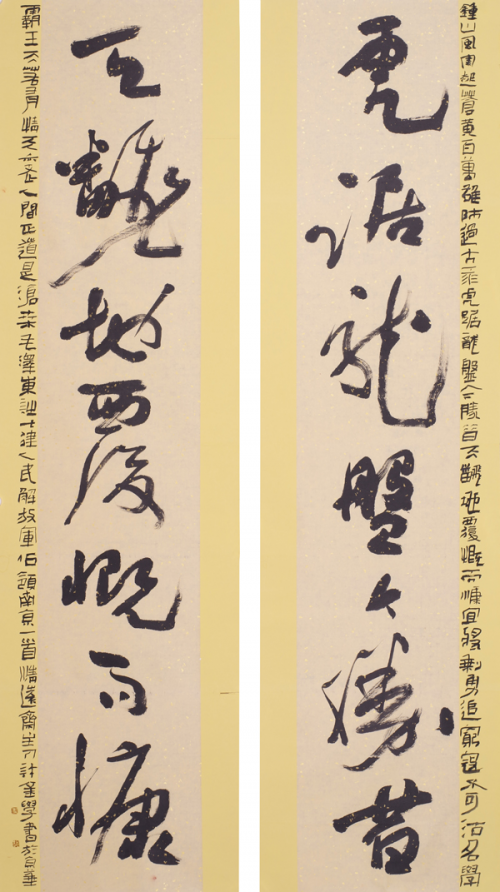 鍾山風雨起蒼黃百萬雄師過大江虎踞龍盤今勝昔天翻地覆慨而慷宜將剩勇追窮寇不可沽名學
虎踞龍盤今勝昔
天翻地覆慨而慷
霸王天若有情天亦老人間正道是滄桑毛澤東詩七律人民解放軍佔領南京一首 齋主 學書於京華